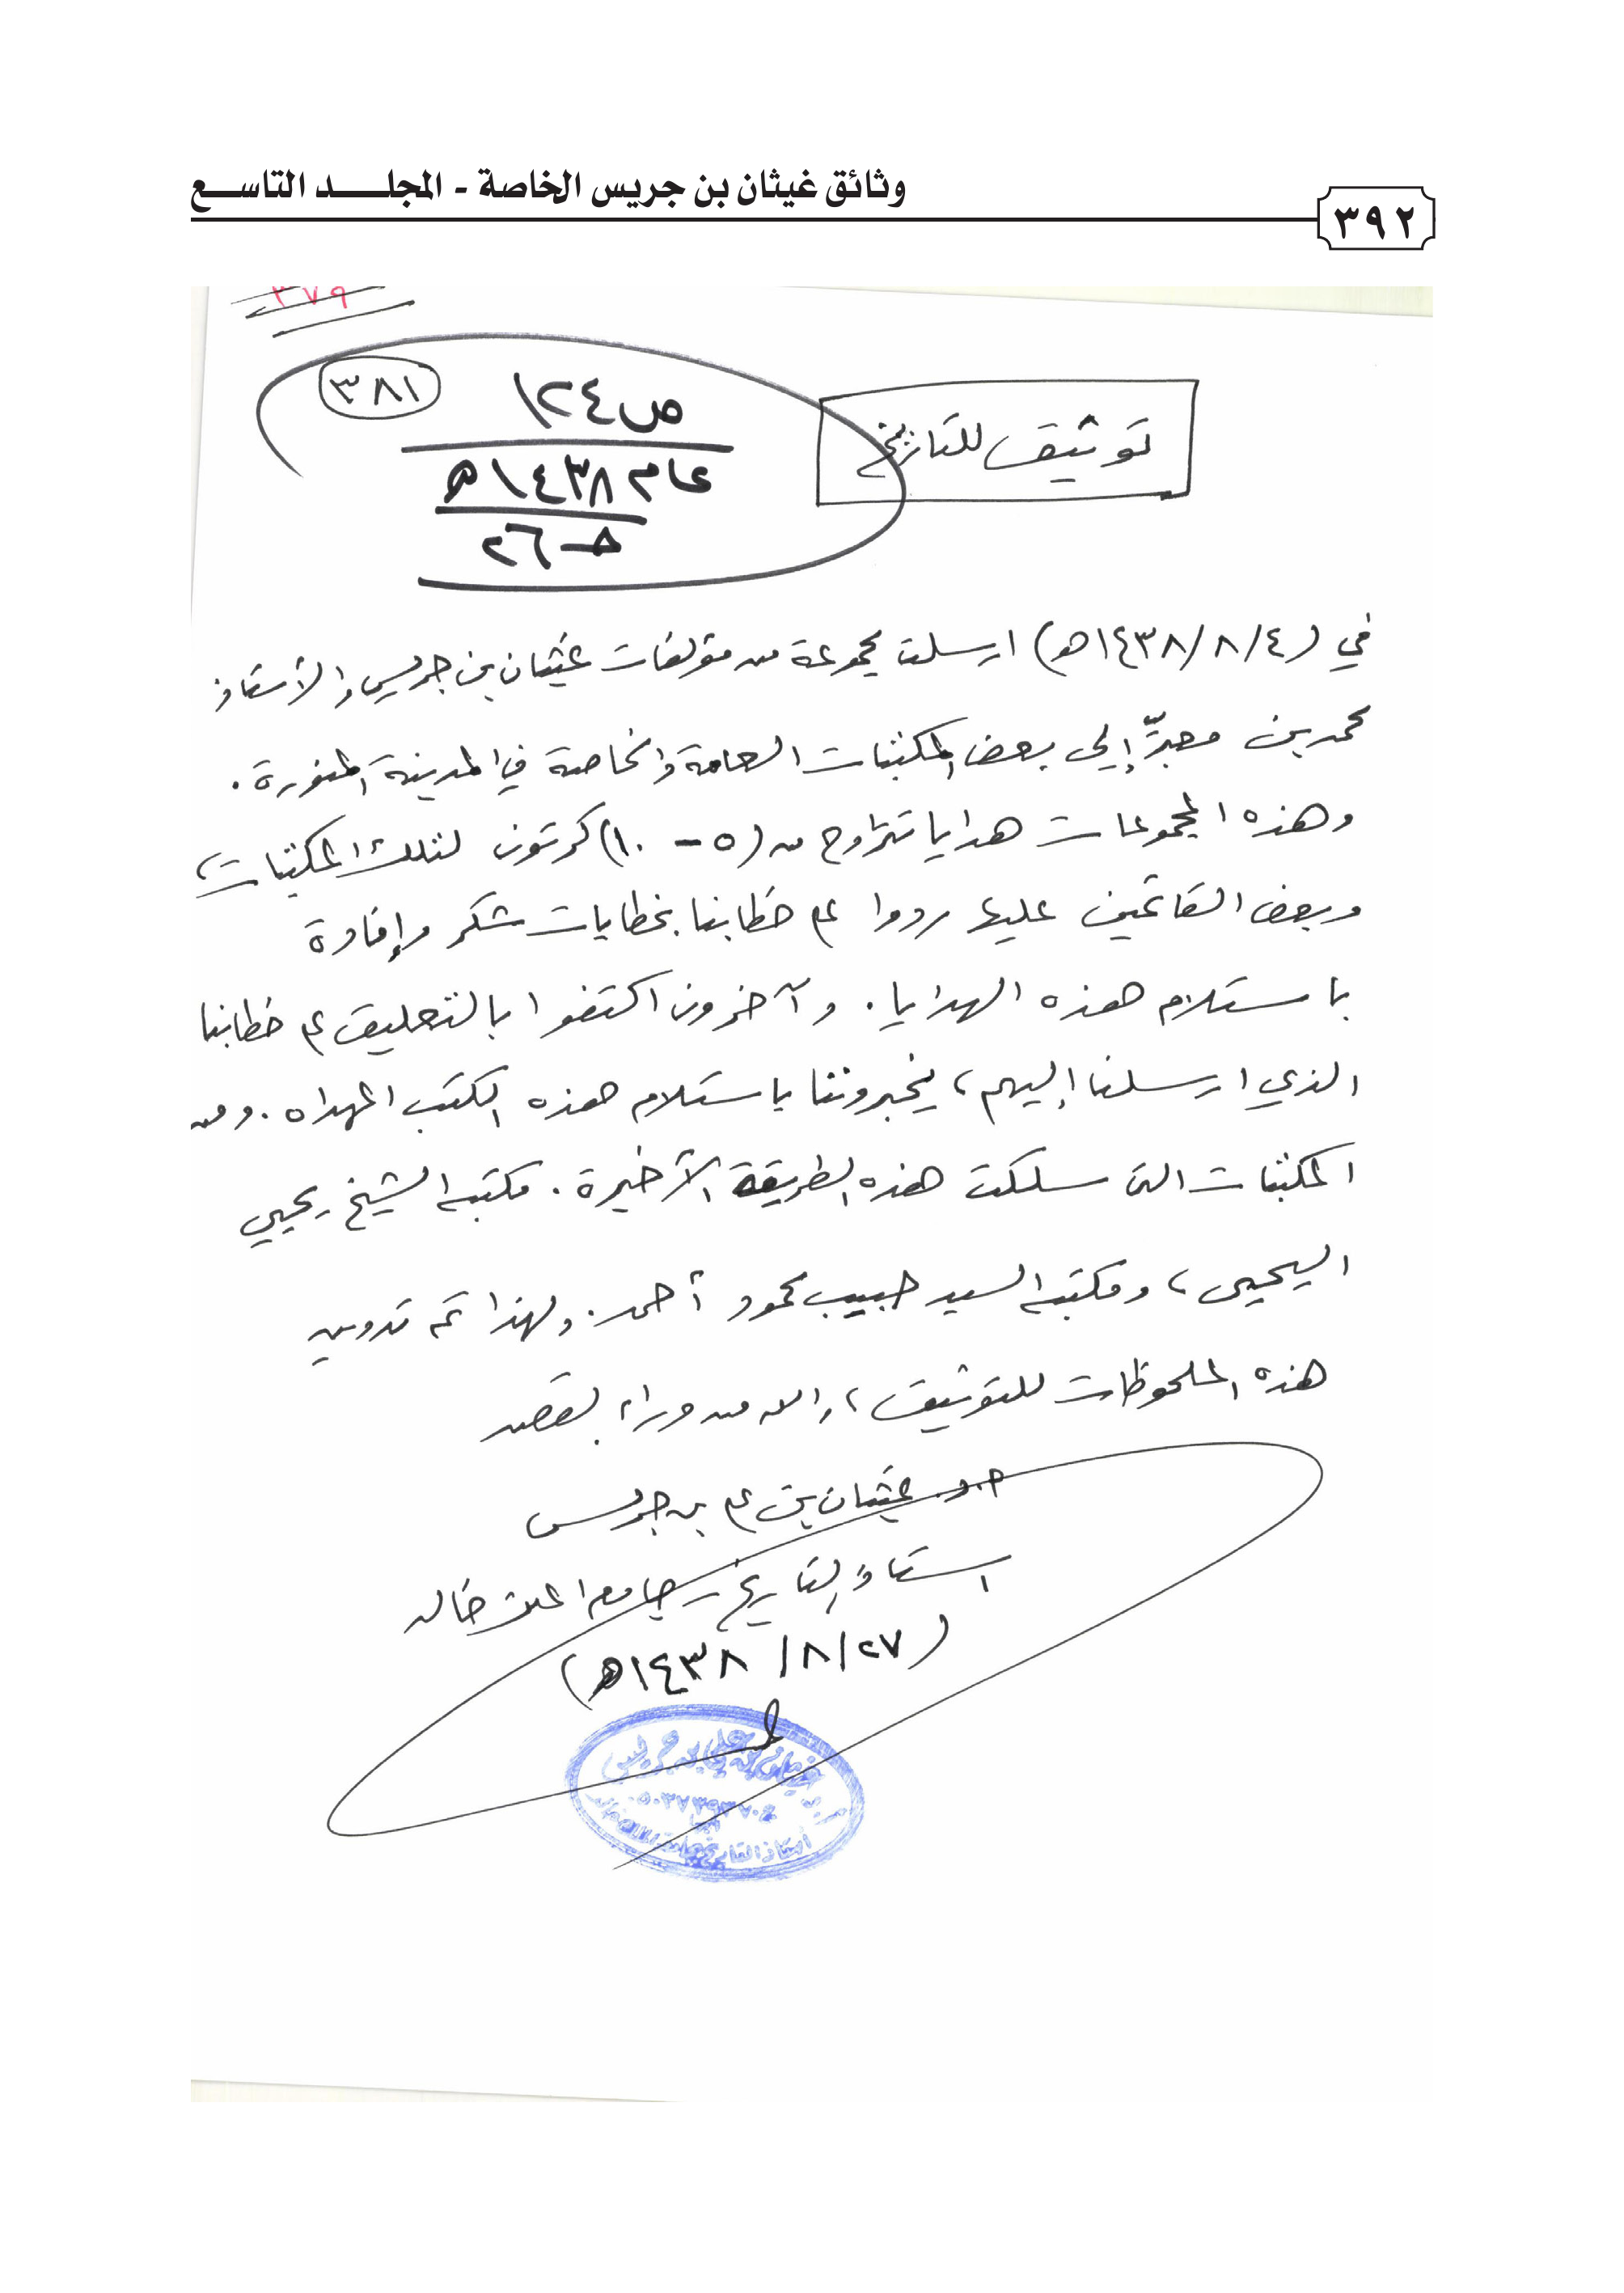 وثائق غيثان بن جريس الخاصة - المجلد التاسع
٣٩٢
٣٧٩
٣٨١
ص ١٢٤
عام ١٤٣٨هـ
حـ ٢٦
توثيق للتاريخ
في (١٤٣٨/٨/٤هـ) ارسلت مجموعة من مؤلفات غيثان بن جريس والأستاذ
محمد بن معبر إلى بعض المكتبات العامة والخاصة في المدينة المنورة .
وهذه المجموعات هدايا تتراوح من (٥ - ١٠) كرتون لتلك المكتبات ،
وبعض القائمين عليها ردوا على خطابنا بخطابات شكر وإفادة
باستلام هذه الهدايا . وآخرون اكتفوا بالتعليق على خطابنا
الذي ارسلنا إليهم ، يخبروننا باستلام هذه الكتب المهداه . ومن
المكتبات التي سلكت هذه الطريقة الأخيرة . مكتبة الشيخ يحيى
اليحيى ، ومكتبة السيد حبيب محمود أحمد . ولهذا تم تدوين
هذه الملحوظات للتوثيق ، والله من وراء القصد
أ.د. غيثان بن علي بن جريس
استاذ التاريخ بجامعة الملك خالد
(١٤٣٨/٨/٢٧هـ)
بن علي بن جريس
أستاذ التاريخ